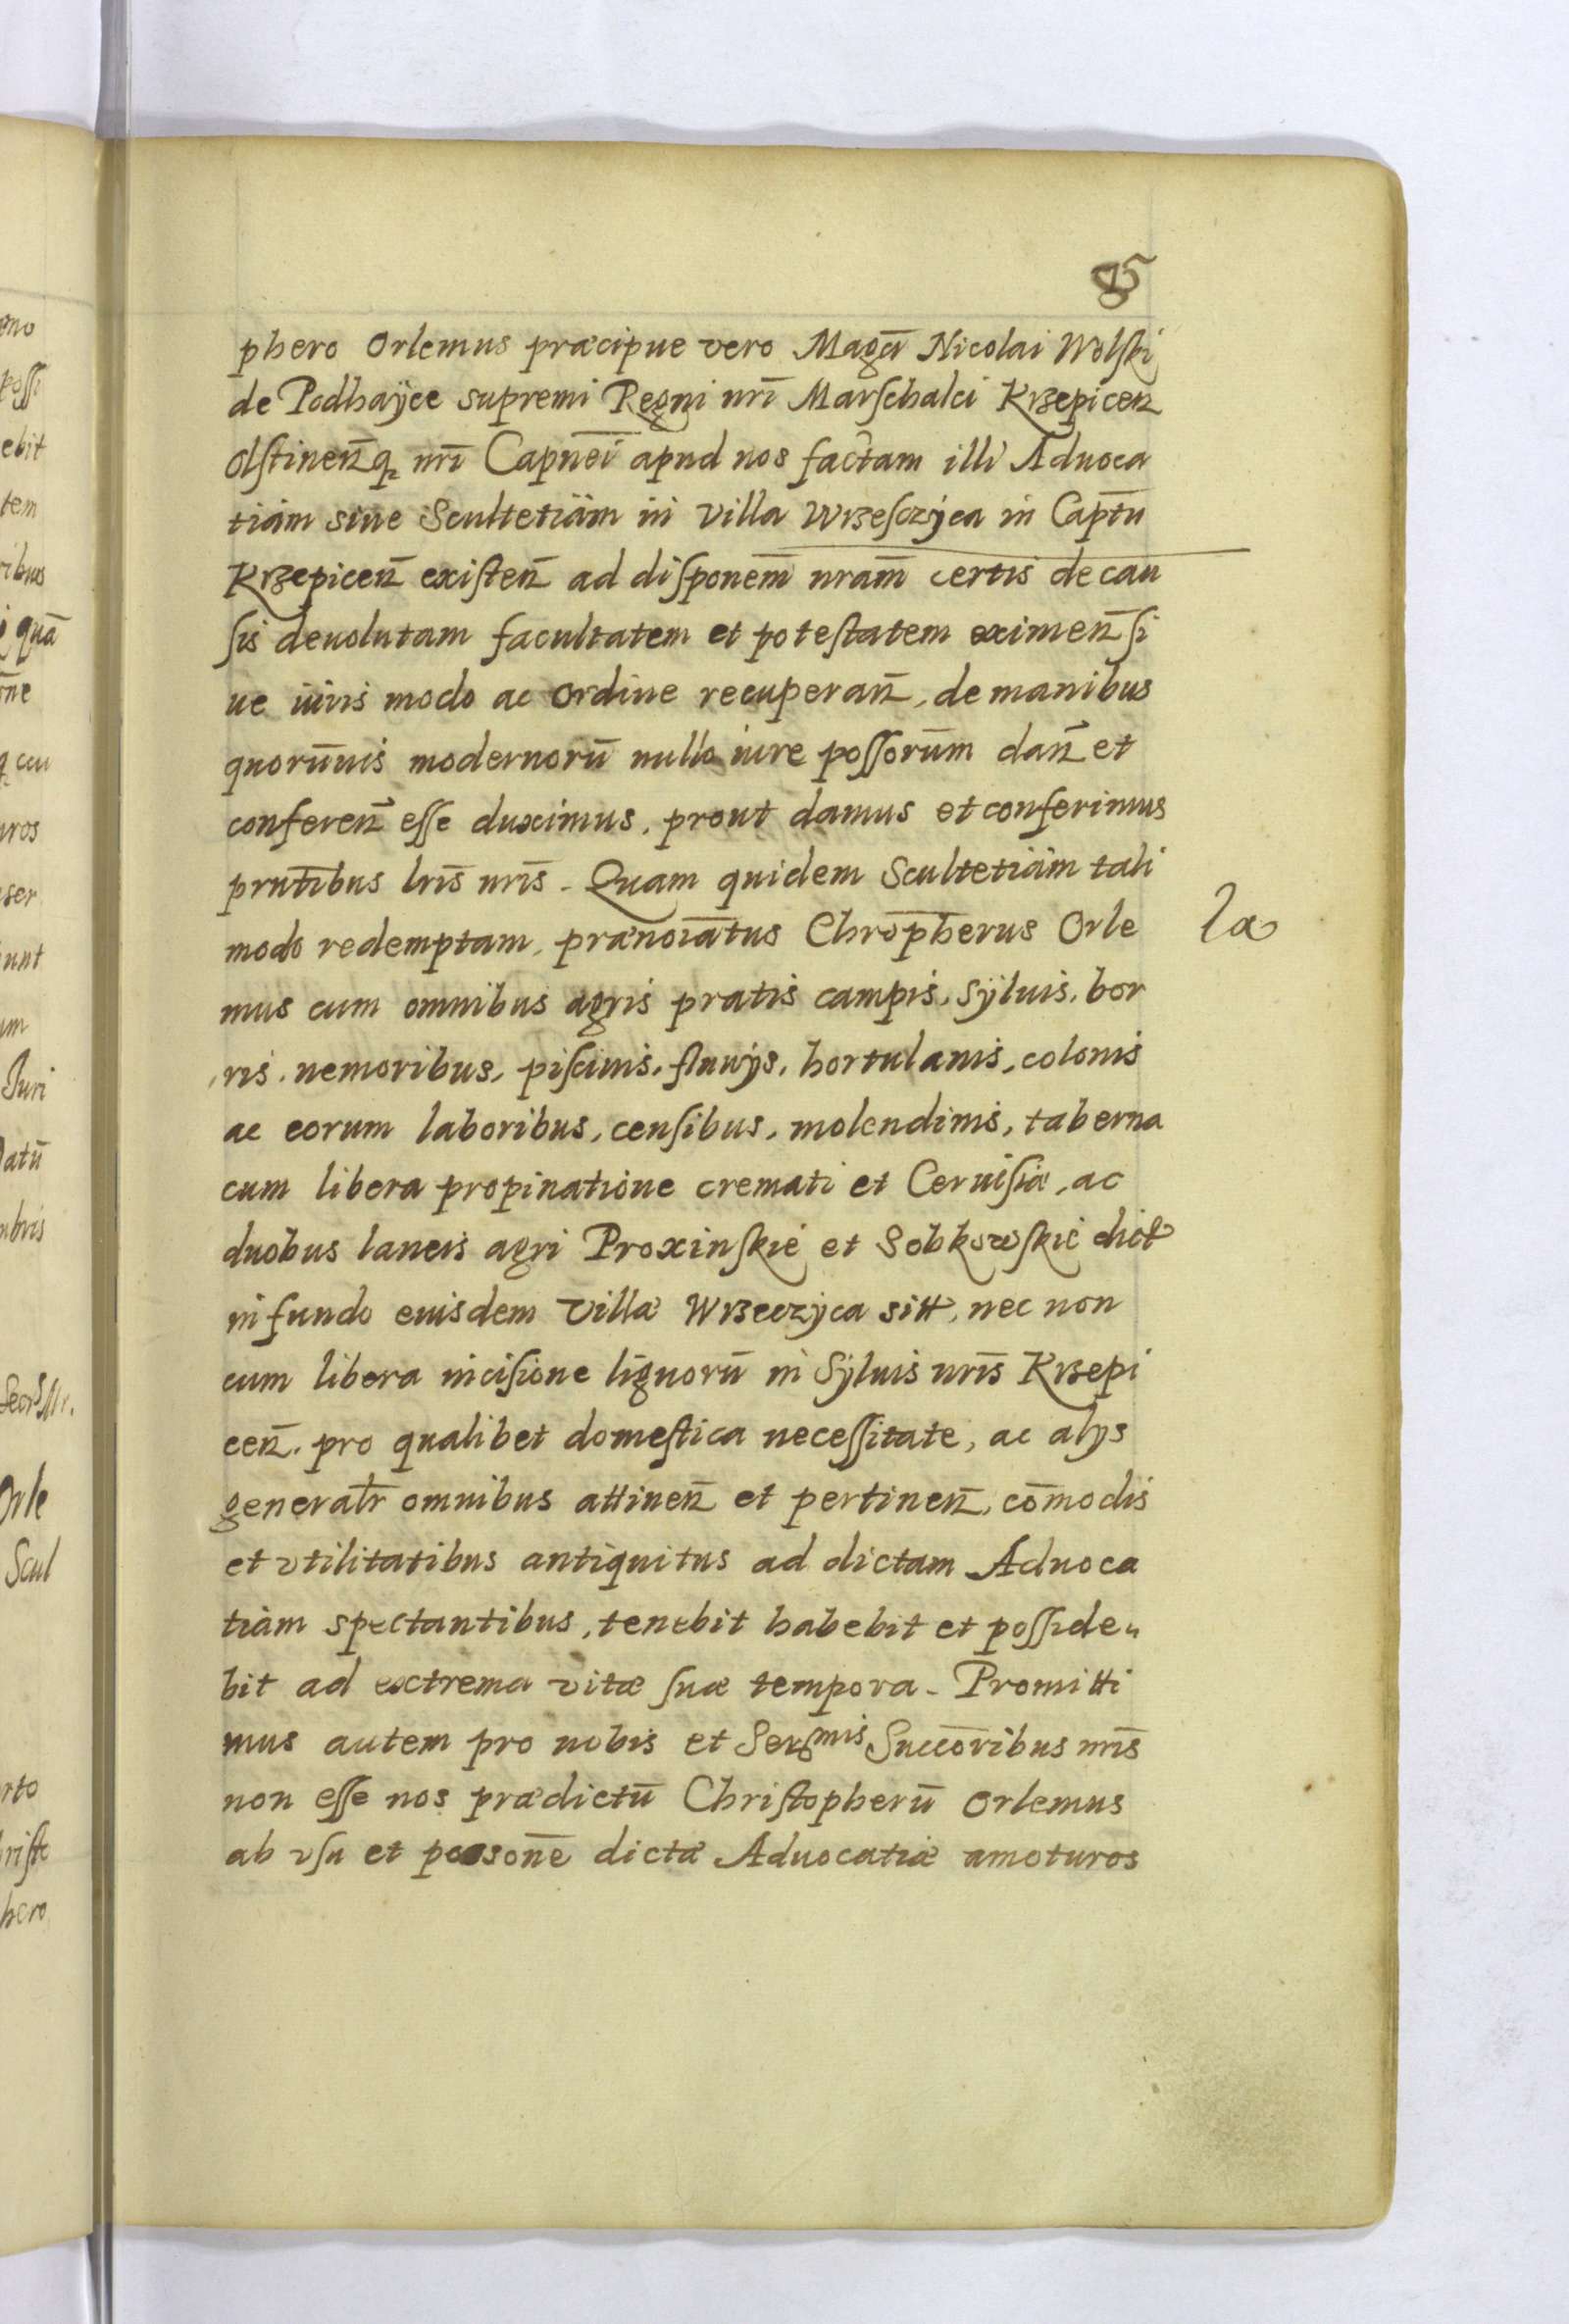 85
phero Orlemus præcipue vero Magcī Nicolai Wolſki
de Podhaÿce supremi Regni nrī Marſchalci Krzepiceñ
Olſtineñq nrī Capnēi apud nos factam illi Aduoca
tiam siue Scultetiam in villa Wrzeſczÿca in Captū
Krzepiceñ exiſteñ ad diſponēm nram̄ certis de cau
ſis deuolutam facultatem et poteſtatem eximeñ ſi
ue iuris modo ac ordine recuperañ, de manibus
quorūuis modernorū nullo iure poſſorūm dañ et
confereñ eſſe duximus, prout damus et conferimus
prnt̄ibus lrīs nrīs. Quam quidem Scultetiam tali
modo redemptam, prænoīatus Chrōpherus Orle
la
mus cum omnibus agris pratis campis, sÿluis, bor
ris, nemoribus, piſcinis, fluuÿs, hortulanis, colonis
ac eorum laboribus, cenſibus, molendinis, taberna
cum libera propinatione cremati et Ceruiſiæ, ac
duobus laneis agri Proxinſkie et Sobkowſkie dict
in fundo eiusdem Villæ Wrzeczÿca sitt, nec non
cum libera inciſione lignorū in Sÿluis nrīs Krzepi
ceñ. pro qualibet domeſtica neceſſitate, ac alÿs
generalr̄ omnibus attineñ et pertineñ, cōmodis
et vtilitatibus antiquitus ad dictam Aduoca
tiam spectantibus, tenebit habebit et poſſide„
bit ad extrema vitæ ſuæ tempora. Promitti
mus autem pro nobis et Serᵐⁱˢ Succōribus nrīs
non eſſe nos prædictū Chriſtopherū Orlemus
ab vſu et possonē dictæ Aduocatiæ amoturos